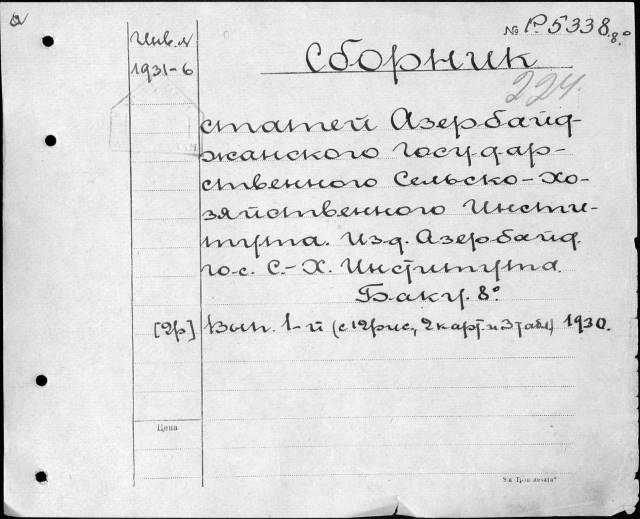 № Р. 5338. 8.°
Инв. №
1931-6
Сборник
224.
статей Азербайд-
жанского Государ-
ственного Сельско-Хо-
зяйственного Инсти-
тута. Изд. Азербайд.
гос. С.-Х. Института.
Баку. 8°.
[2р] Вып. 1-й (с 12 рис., 2 карт. и 3 табл.) 1930.
Цена